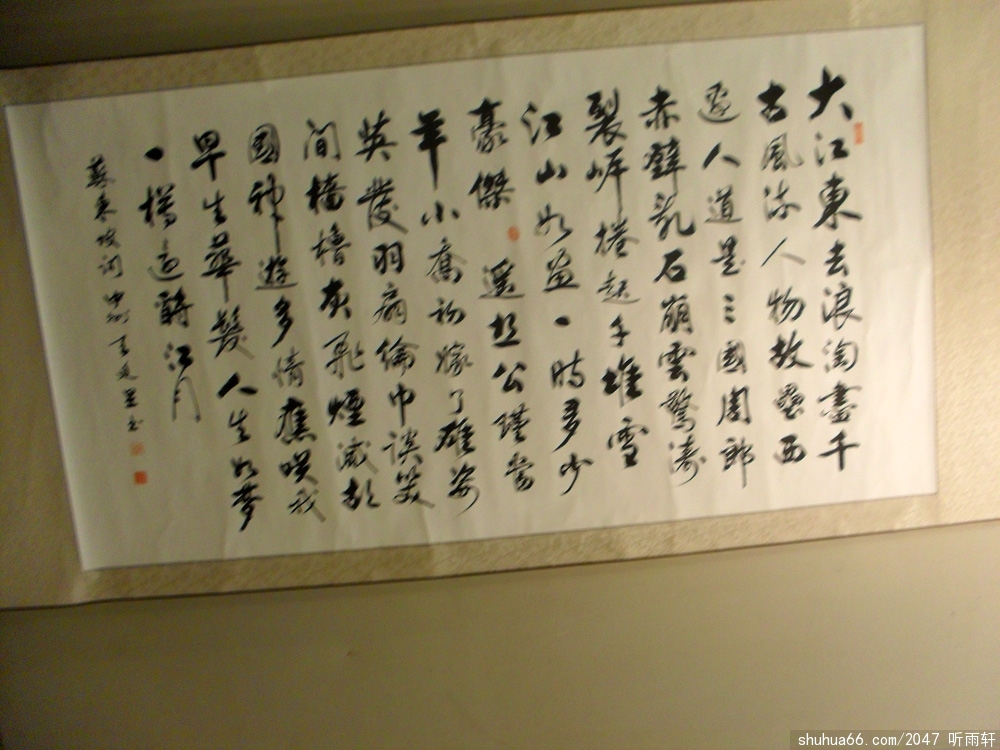 大江東去浪淘盡千
古風流人物故壘西
邊人道是三國周郎
赤壁乱石崩雲驚濤
裂岸捲起千堆雪
江山如畫一時多少
豪傑 遥想公瑾當
年小喬初嫁了雄姿
英發羽扇倫巾談笑
间檣櫓灰飛煙滅故
國神遊多情應笑我
早生華髮人生如夢
一樽還酹江月
蘇東坡詞 書
shuhua66.com/2047 听雨轩